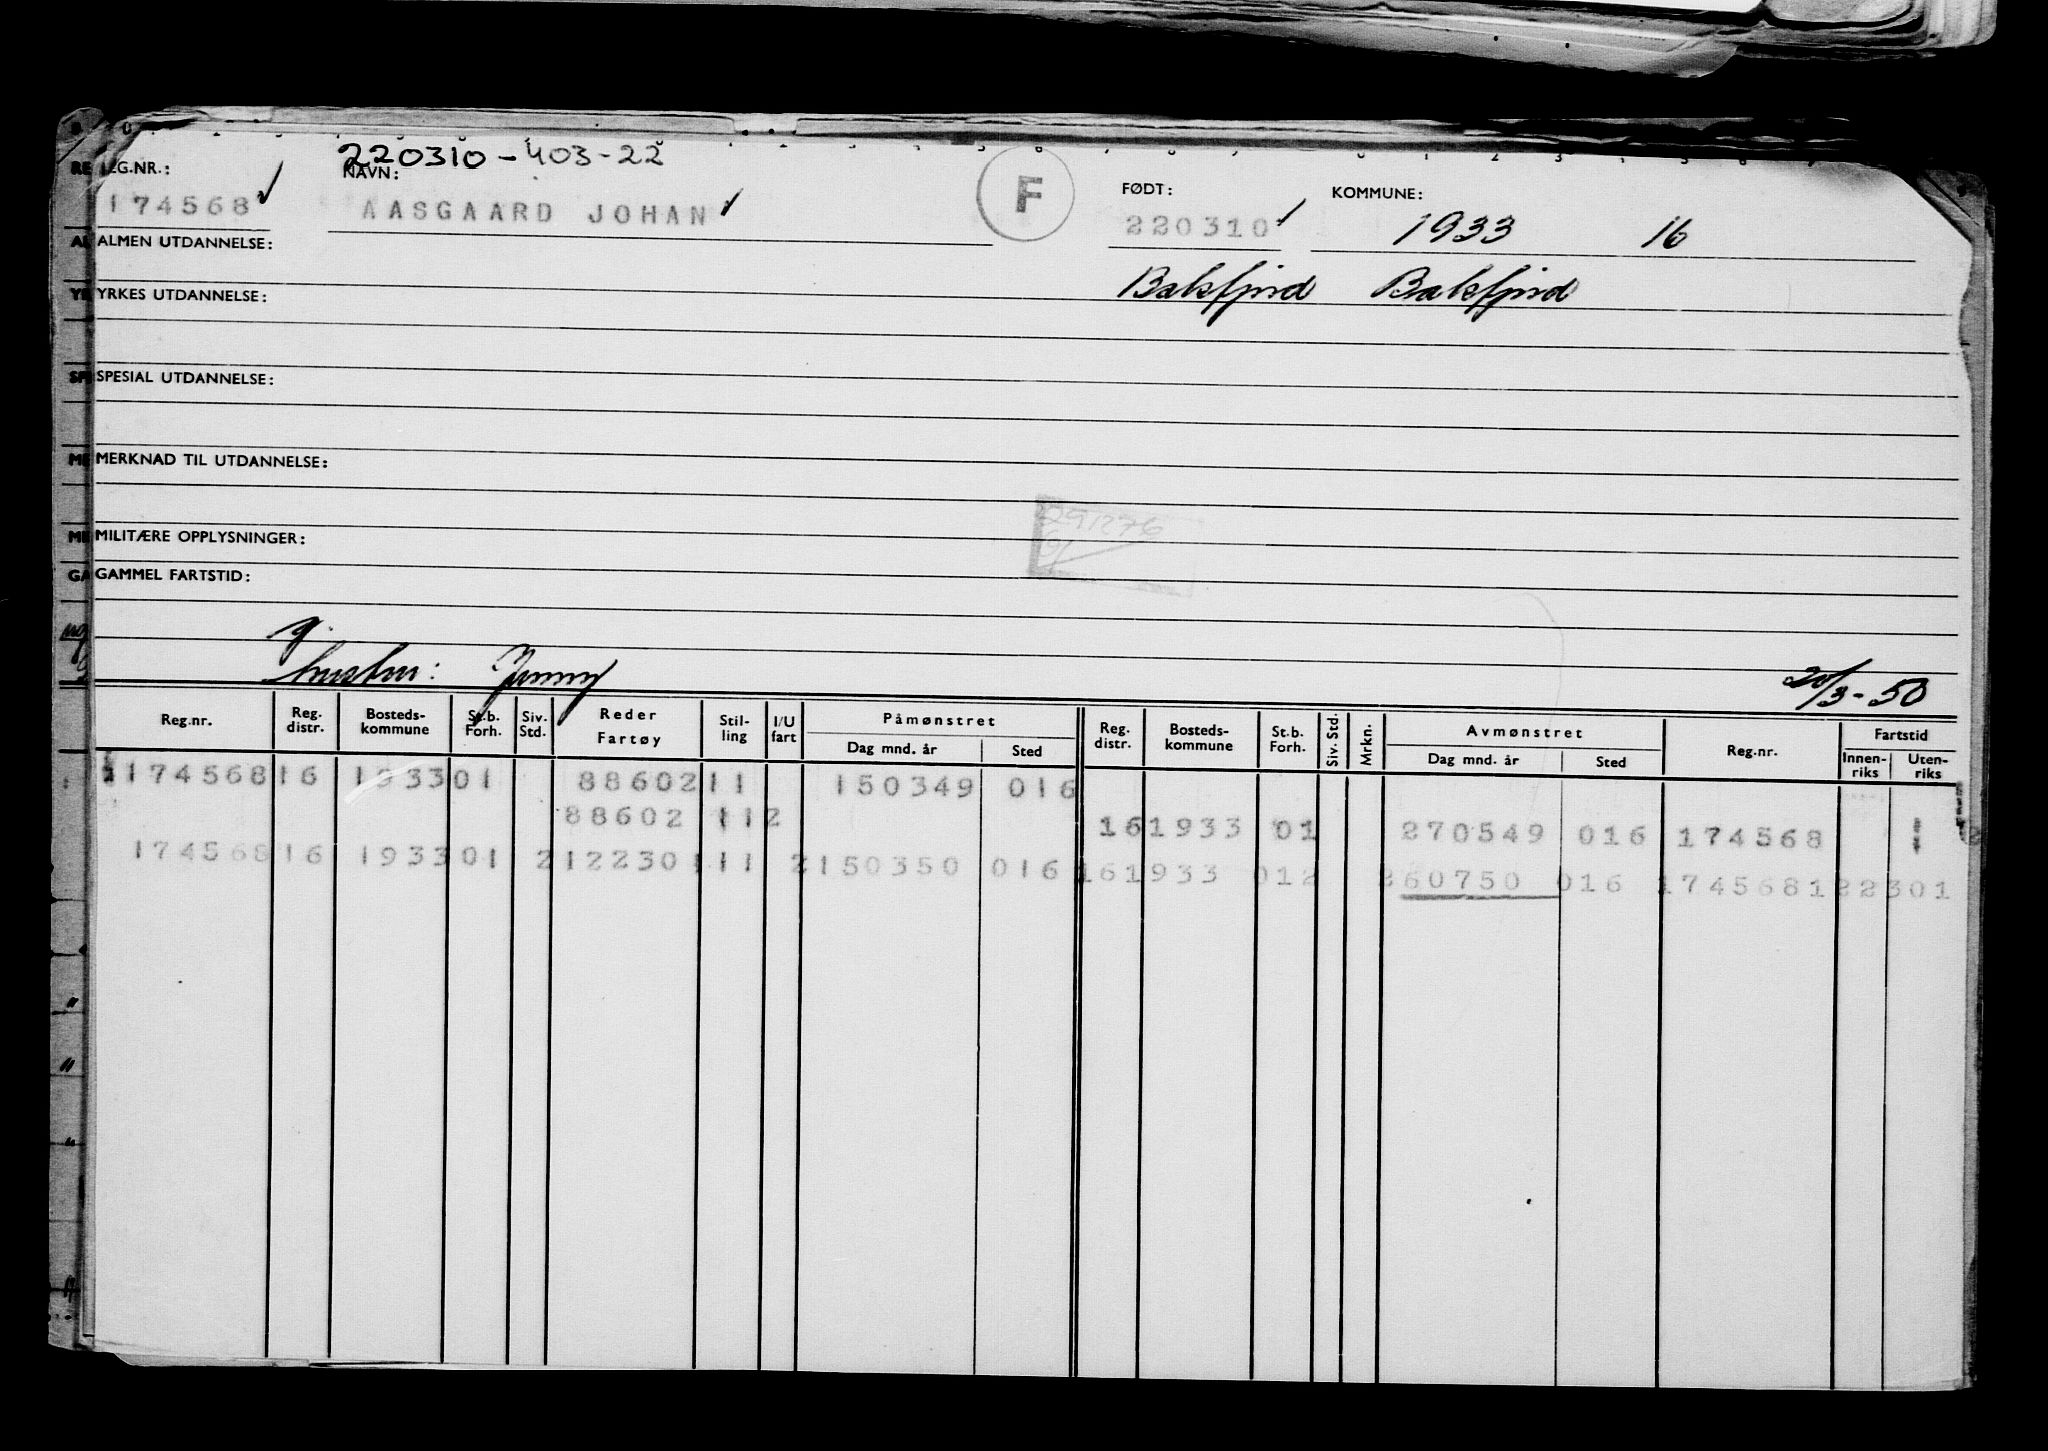 220310-403-22
REG.NR.: NAVN: F FØDT: KOMMUNE:
174568 AASGAARD JOHAN 220310 1933 16
ALMEN UTDANNELSE:
Balsfjord Balsfjord
YRKES UTDANNELSE:
SPESIAL UTDANNELSE:
MERKNAD TIL UTDANNELSE:
291276
MILITÆRE OPPLYSNINGER:
GAMMEL FARTSTID:
g.
hustru: Jenny 20/3-50
Reg.nr. Reg. distr. Bosteds-kommune St.b. Forh. Siv. Std. Reder Fartøy Stil-ling I/U fart Påmønstret Dag mnd. år Sted Reg. distr. Bosteds-kommune St.b. Forh. Siv. Std. Mrkn. Avmønstret Dag mnd. år Sted Reg.nr. Fartstid Innen-riks Uten-riks
1174568 16 1933 01 88602 11 150349 016
88602 112 16 1933 01 270549 016 174568
174568 16 1933 01 2 122301 11 2 150350 016 16 1933 012 260750 016 174568 122301